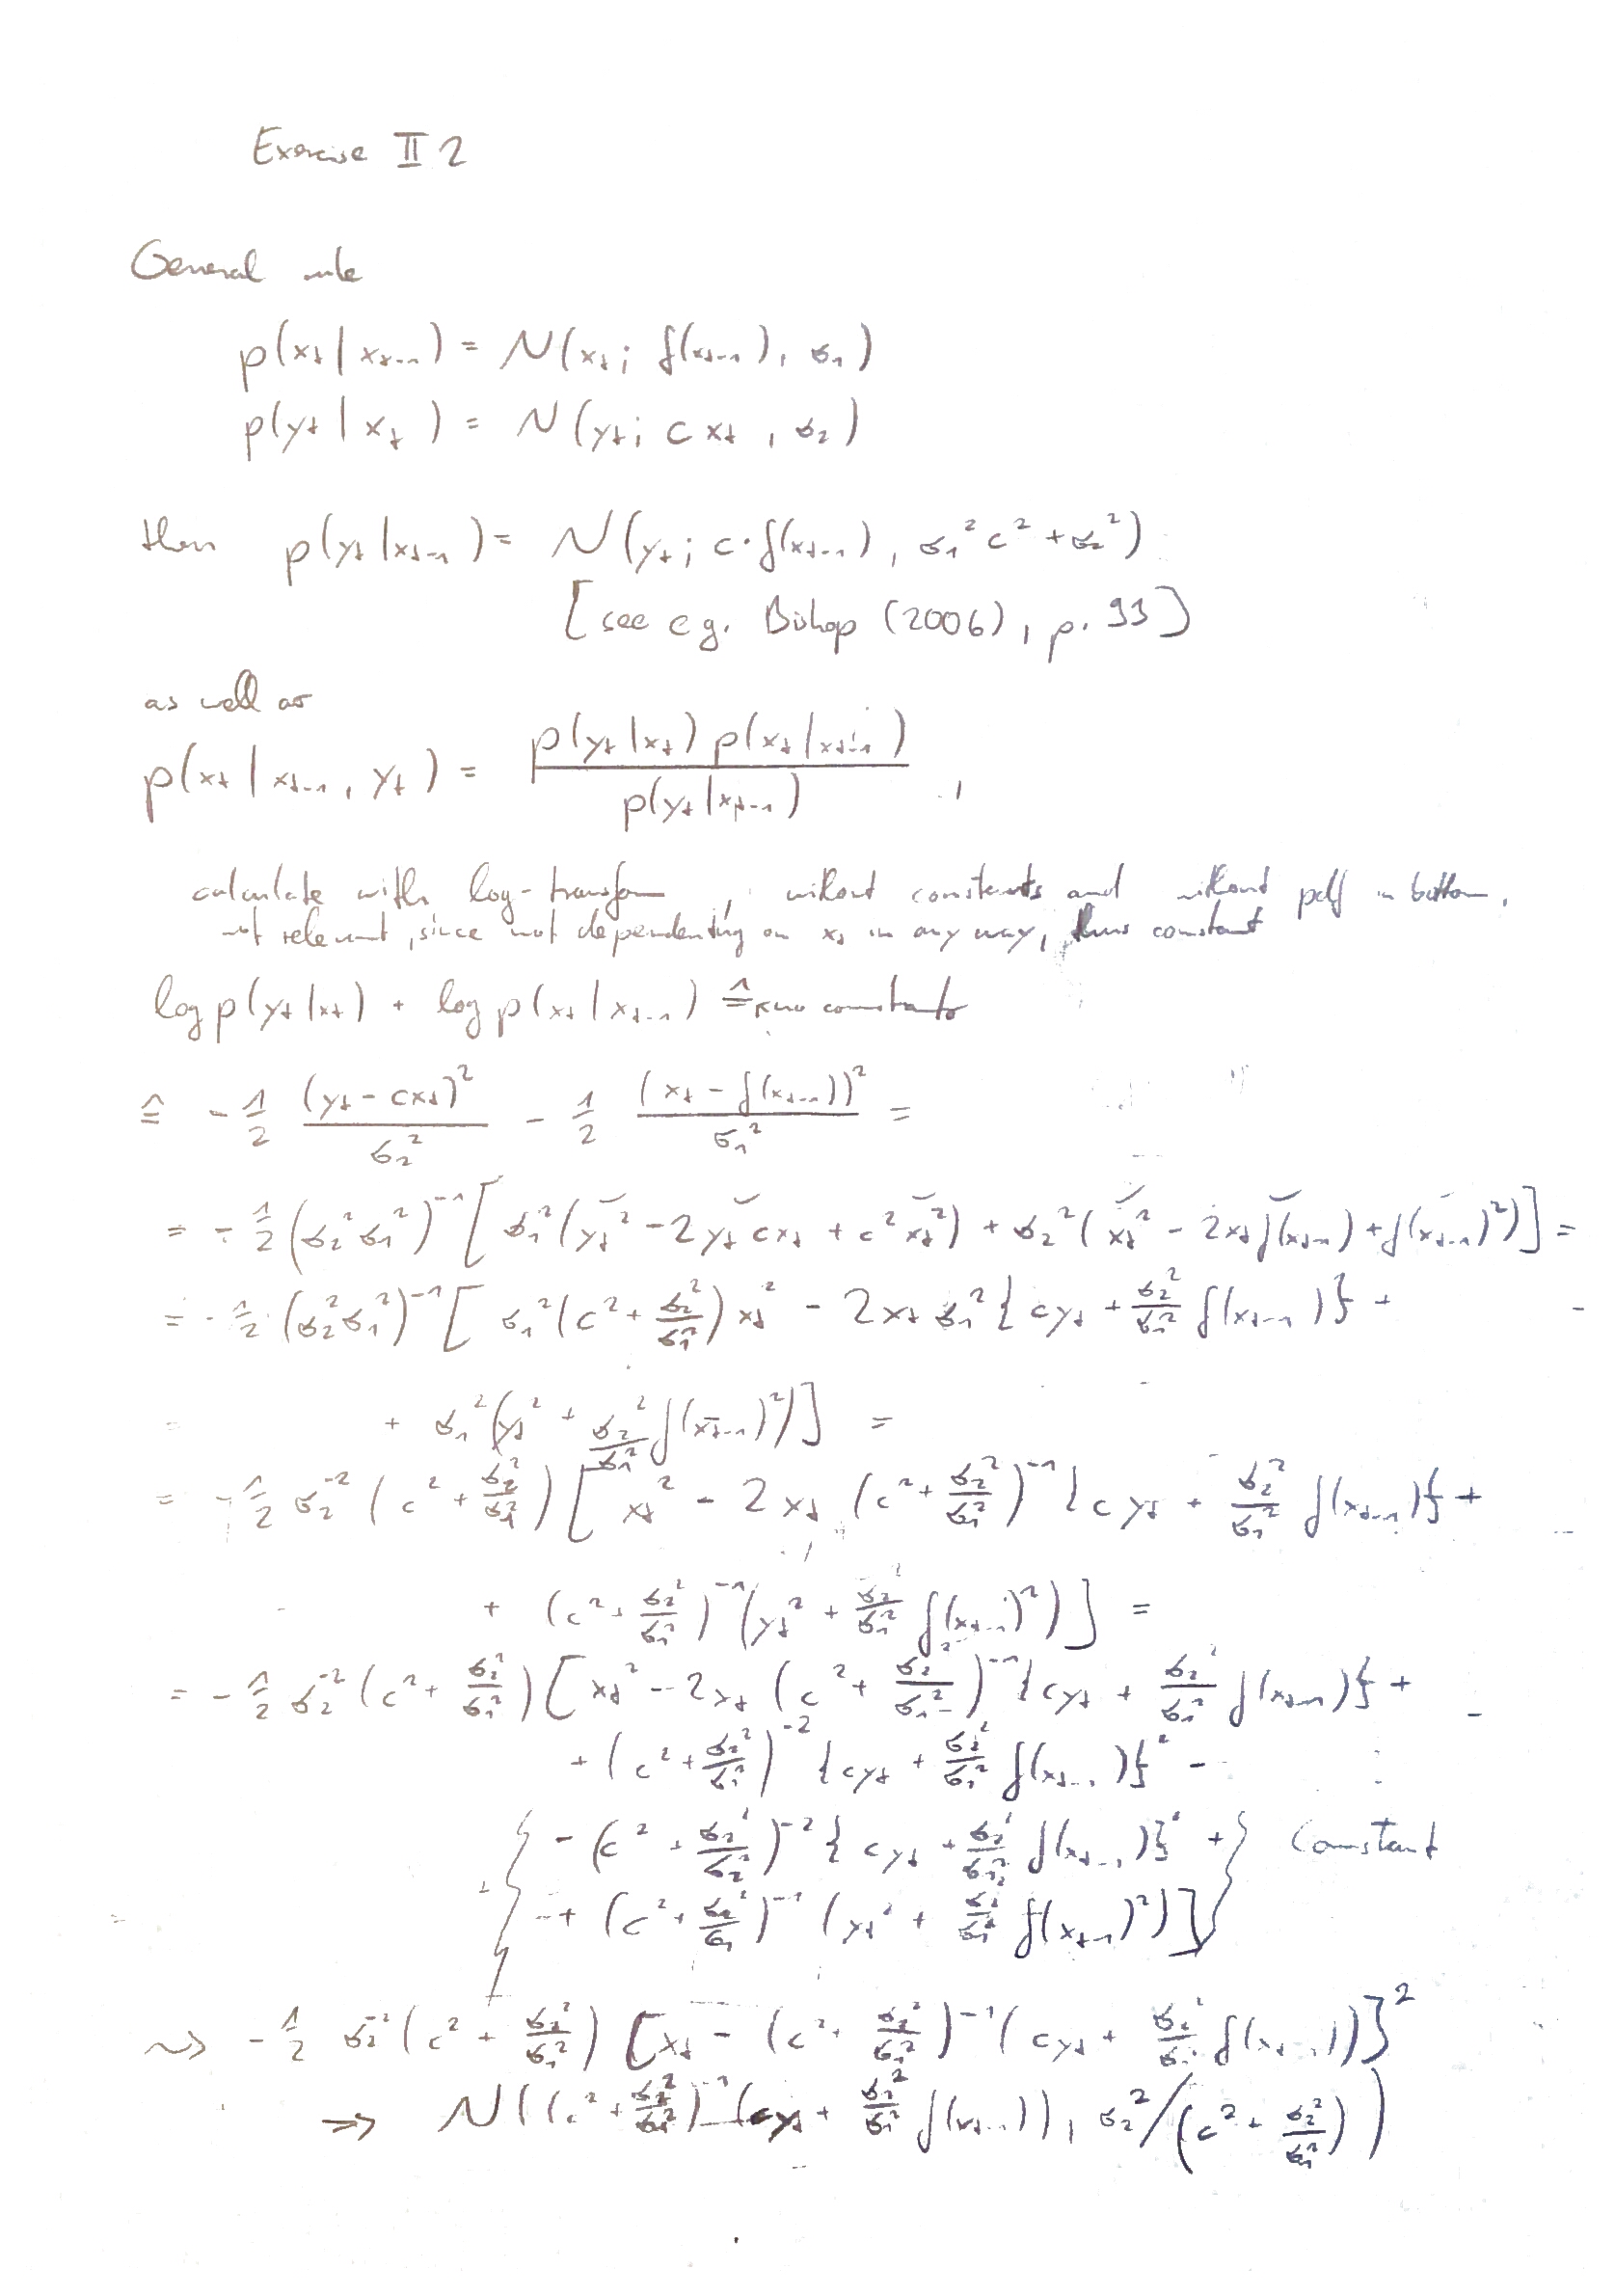 Exercise II 2
General rule
p(x_t | x_{t-1}) = N(x_t; f(x_{t-1}), σ_1)
p(y_t | x_t) = N(y_t; c x_t, σ_2)
then p(y_t | x_{t-1}) = N(y_t; c·f(x_{t-1}), σ_1² c² + σ_2²)
[see e.g. Bishop (2006), p. 93]
as well as
p(x_t | x_{t-1}, y_t) = p(y_t | x_t) p(x_t | x_{t-1}) / p(y_t | x_{t-1}) ,
calculate with log-transform, without constants and without pdf in bottom,
not relevant, since not dependenting on x_t in any way, thus constant
log p(y_t | x_t) + log p(x_t | x_{t-1}) ≙ no constants
≙ - 1/2 (y_t - c x_t)² / σ_2² - 1/2 (x_t - f(x_{t-1}))² / σ_1² =
= - 1/2 (σ_2² σ_1²)^{-1} [ σ_1² (y_t² - 2 y_t c x_t + c² x_t²) + σ_2² (x_t² - 2 x_t f(x_{t-1}) + f(x_{t-1})²) ] =
= - 1/2 (σ_2² σ_1²)^{-1} [ σ_1² (c² + σ_2²/σ_1²) x_t² - 2 x_t σ_1² { c y_t + σ_2²/σ_1² f(x_{t-1}) } +
+ σ_1² (y_t² + σ_2²/σ_1² f(x_{t-1})²) ] =
= - 1/2 σ_2^{-2} (c² + σ_2²/σ_1²) [ x_t² - 2 x_t (c² + σ_2²/σ_1²)^{-1} { c y_t + σ_2²/σ_1² f(x_{t-1}) } +
+ (c² + σ_2²/σ_1²)^{-1} (y_t² + σ_2²/σ_1² f(x_{t-1})²) ] =
= - 1/2 σ_2^{-2} (c² + σ_2²/σ_1²) [ x_t² - 2 x_t (c² + σ_2²/σ_1²)^{-1} { c y_t + σ_2²/σ_1² f(x_{t-1}) } +
+ (c² + σ_2²/σ_1²)^{-2} { c y_t + σ_2²/σ_1² f(x_{t-1}) }² -
- (c² + σ_2²/σ_2²)^{-2} { c y_t + σ_2²/σ_1² f(x_{t-1}) }² + } Constant
+ (c² + σ_2²/σ_1)^{-1} (y_t² + σ_2²/σ_1² f(x_{t-1})²) ]
⇝ - 1/2 σ_2^{-2} (c² + σ_2²/σ_1²) [ x_t - (c² + σ_2²/σ_1²)^{-1} ( c y_t + σ_2²/σ_1² f(x_{t-1}) ) ]²
⇒ N( (c² + σ_2²/σ_1²)^{-1} (c y_t + σ_2²/σ_1² f(x_{t-1})), σ_2² / (c² + σ_2²/σ_1²) )